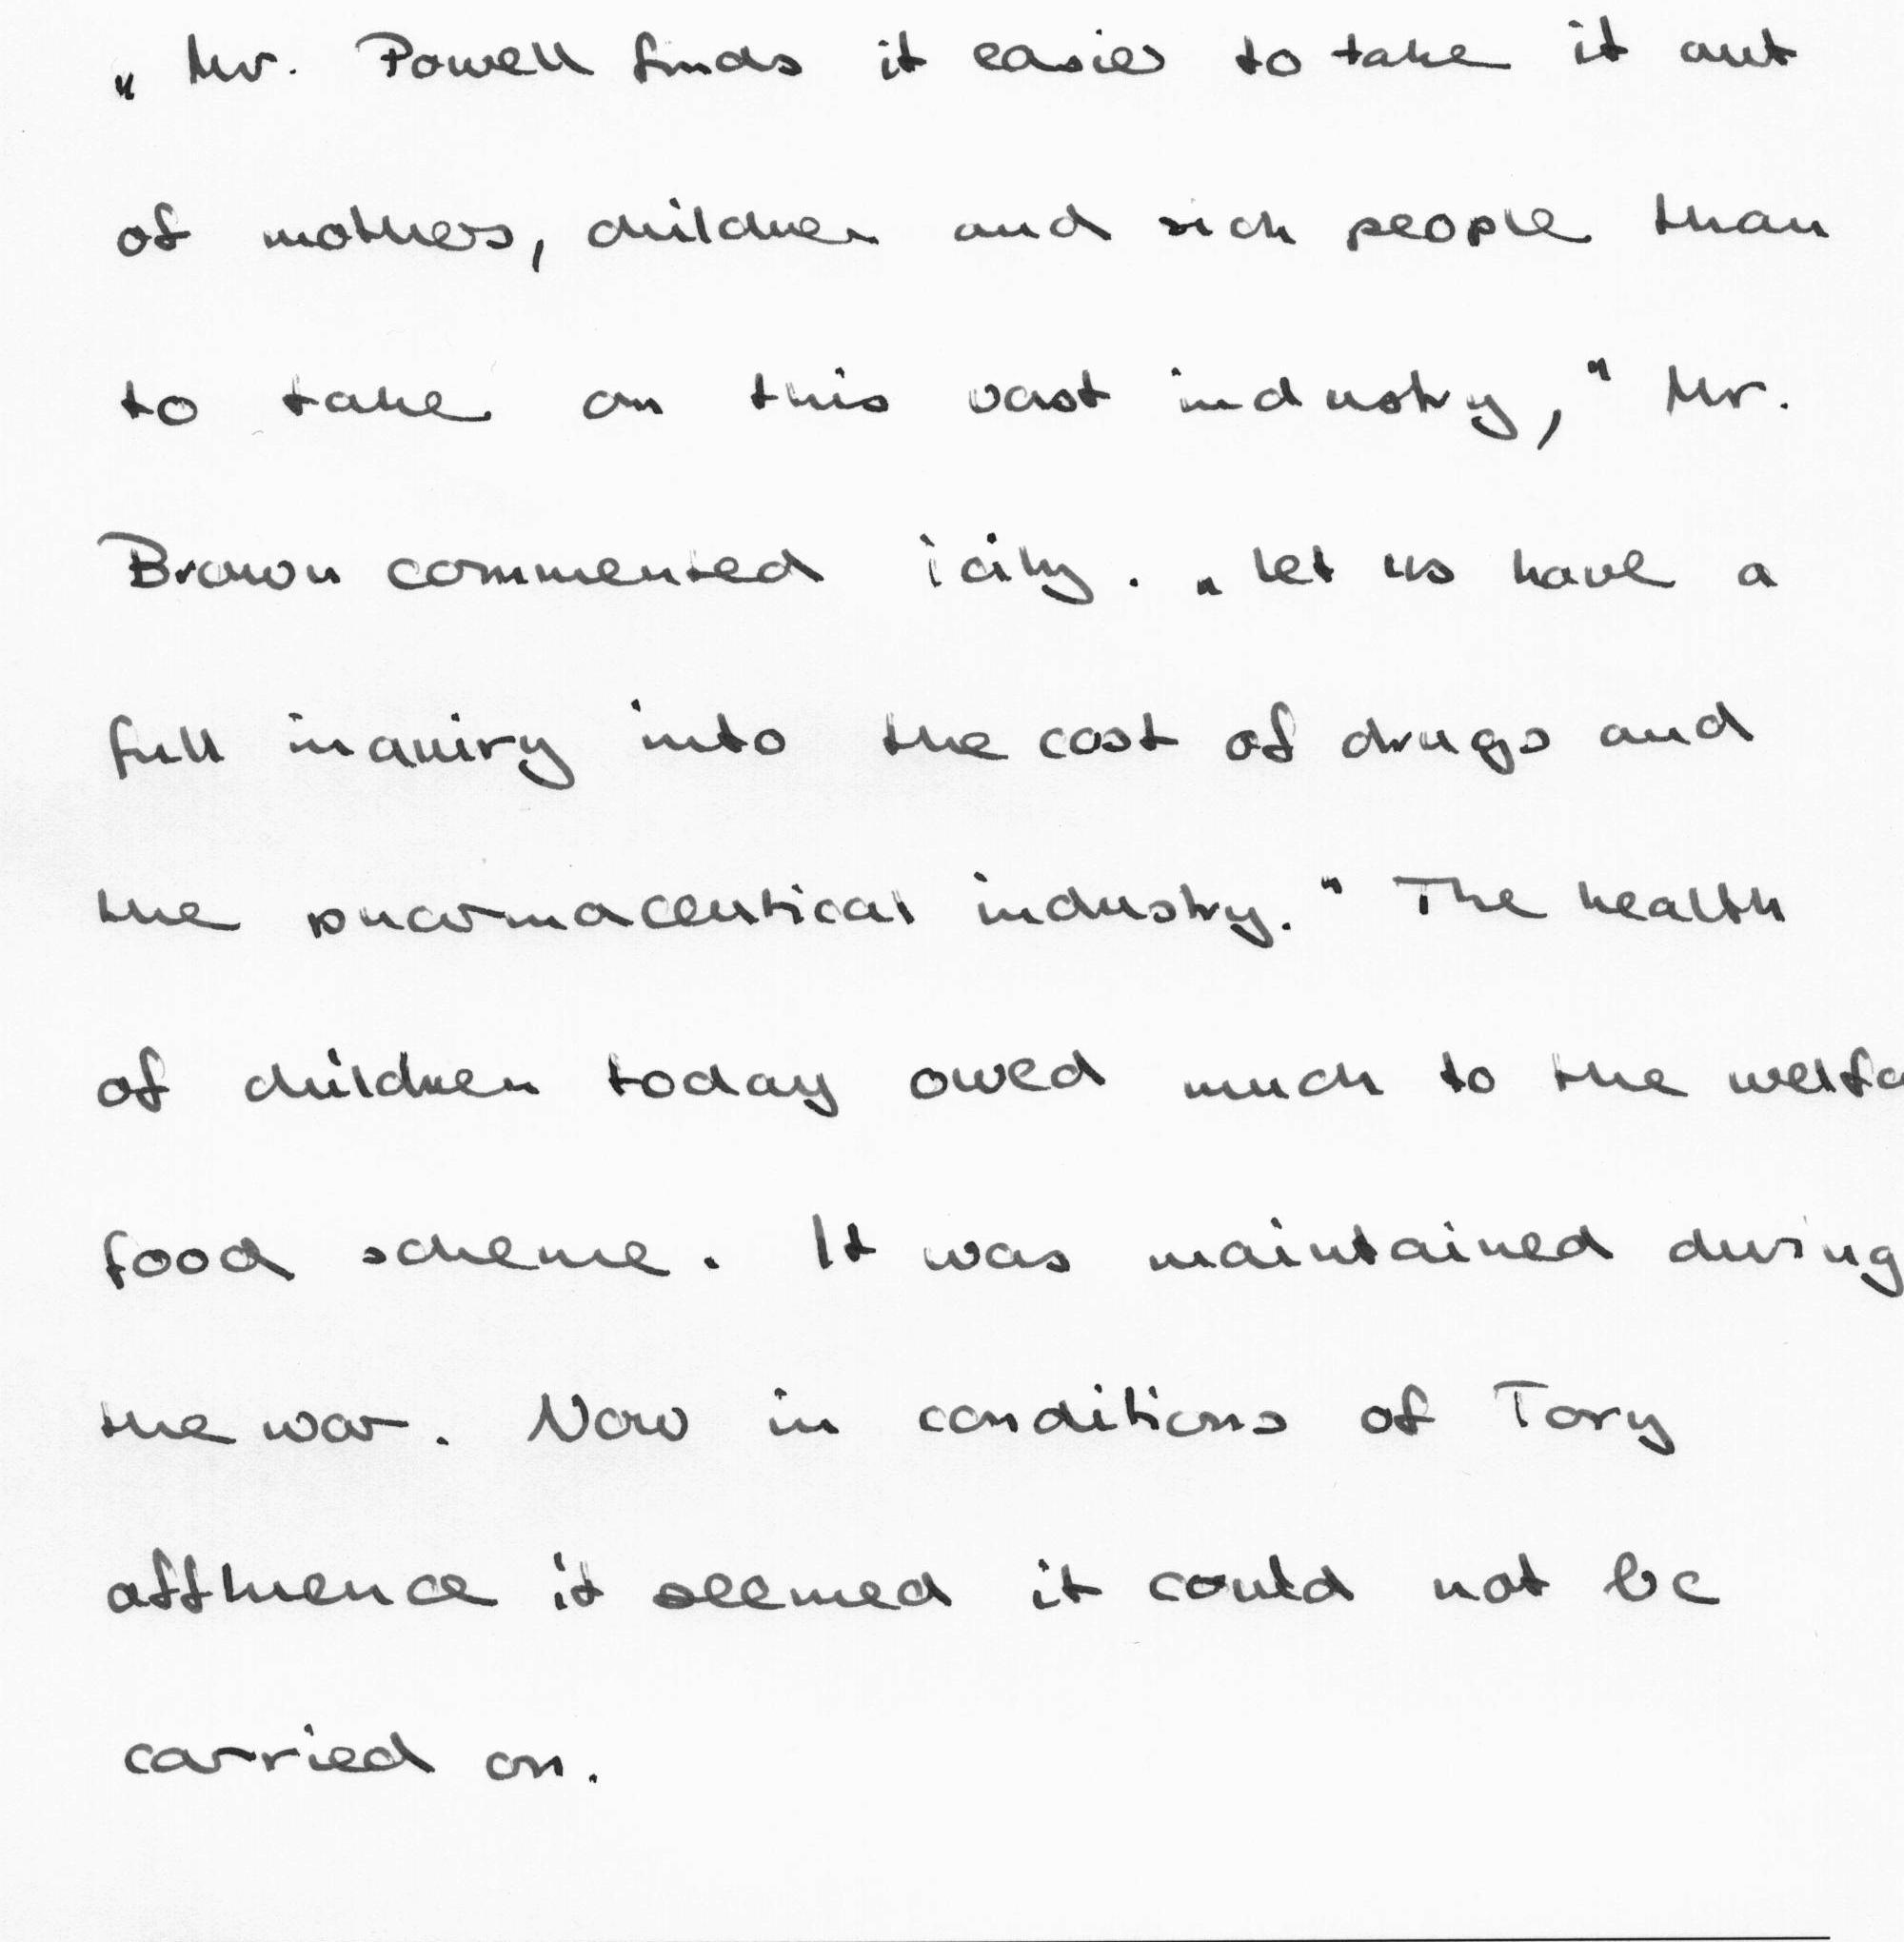 „Mr. Powell finds it easier to take it out
of mothers, children and sick people than
to take on this vast industry," Mr.
Brown commented icily. „Let us have a
full inquiry into the cost of drugs and
the pharmaceutical industry." The health
of children today owed much to the welfa
food scheme. It was maintained during
the war. Now in conditions of Tory
affluence it seemed it could not be
carried on.